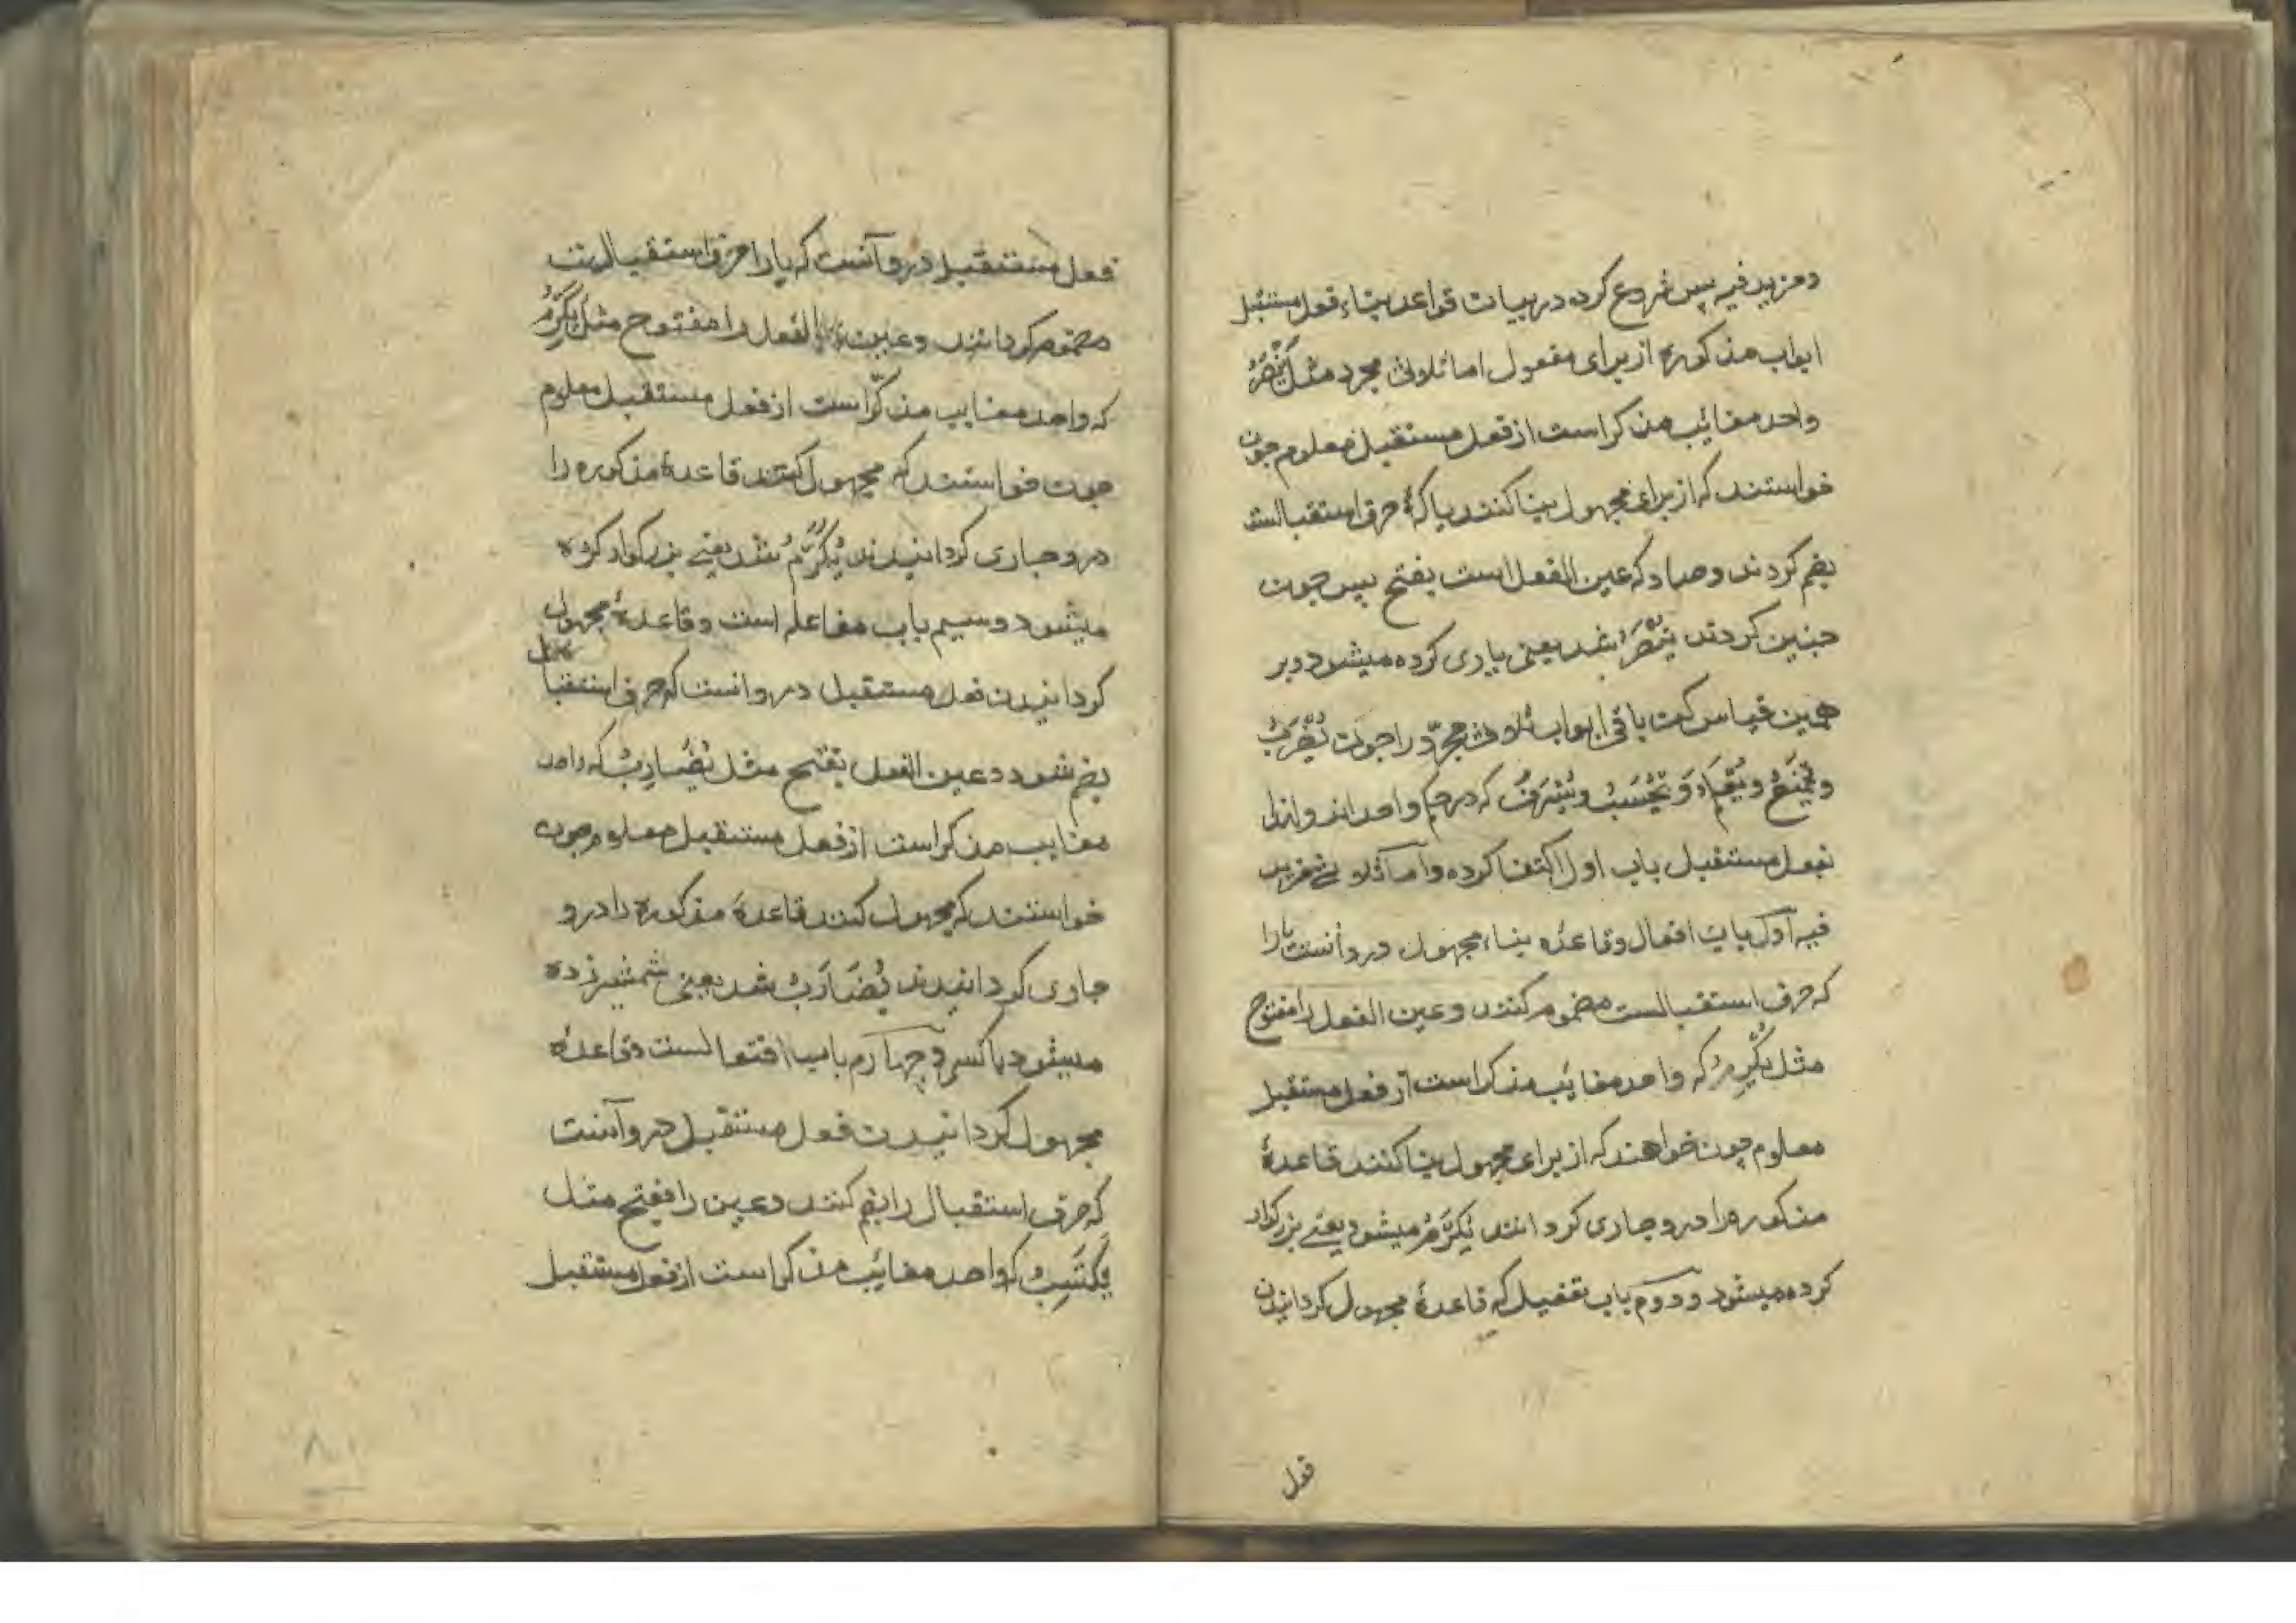 ومزید فیه پس شروع کرده در بیان قواعد بناء فعل مستقبل
ابواب مذکوره از برای مفعول اما ثلاثی مجرد مثل یَنْصُرُ
واحد مغائب مذکر است از فعل مستقبل معلوم چون
خواستند که از برای مجهول بنا کنند یا که حرف استقبالست
بضم کردند و صاد که عین الفعل است بفتح پس چون
چنین کردند یُنْصَرُ شد یعنی یاری کرده میشود و بر
همین قیاس کن باقی ابواب ثلاثی مجرّد را چون یُضْرَبُ
و یُمْنَعُ و یُحْسَبُ و یُشْرَفُ که در حکم واحد اند
بفعل مستقبل باب اول اکتفا کرده و اما ثلاثی مزید
فیه اوّل باب افعال و قاعده بناء مجهول درو آنست یا را
که حرف استقبالست مضموم کنند و عین الفعل را مفتوح
مثل یُکْرِمُ که واحد مغائب مذکر است از فعل مستقبل
معلوم چون خواهند که از برای مجهول بنا کنند قاعدهٔ
مذکوره را درو جاری کردانند یُکْرَمُ میشود یعنی بزرکوار
کرده میشود و دوّم باب تفعیل که قاعدهٔ مجهول کردانیدن
فعل
فعل مستقبل درو آنست که یا را حرف استقبالست
مضموم کردانند و عین الفعل را مفتوح مثل یُکَرِّمُ
که واحد مغایب مذکّر است از فعل مستقبل معلوم
چون خواستند که مجهول کنند قاعدهٔ مذکوره را
درو جاری کردانیدند یُکَرَّمُ شد یعنی بزرکوار کرده
میشود و سیم باب مفاعله است و قاعدهٔ مجهول
کردانیدن فعل مستقبل درو انست که حرف استقبال
بضم شود و عین الفعل بفتح مثل یُضَارِبُ که واحد
مغایب مذکر است از فعل مستقبل معلوم چون
خواستند که مجهول کنند قاعدهٔ مذکوره را درو
جاری کردانیدند یُضَارَبُ شد یعنی شمشیر زده
میشود با کسی و چهارم باب افتعالست و قاعدهٔ
مجهول کردانیدن فعل مستقبل درو آنست
که حرف استقبال را بضم کنند و عین را بفتح مثل
یَکْتَسِبُ که واحد مغائب مذکر است از فعل مستقبل